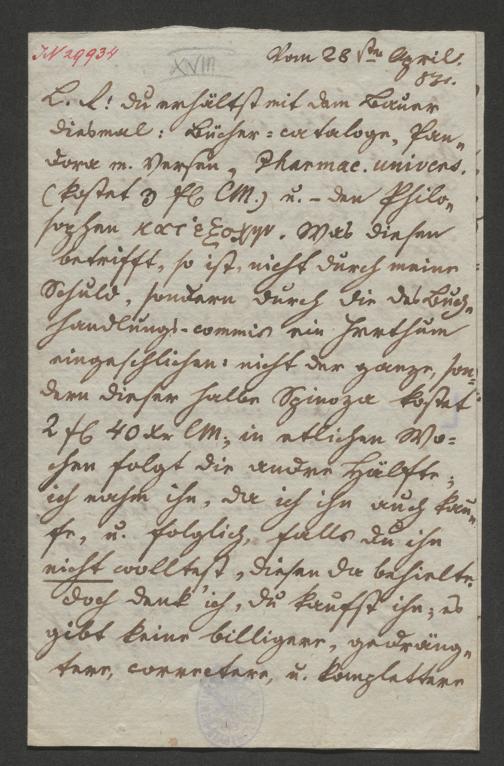 IN 29934
XVIII
Vom 28sten April.
831.
L. L! du erhältst mit dem Bauer
diesmal: Bücher=cataloge, Pan-
dora m. Versen, Pharmac. univers.
(kostet 3 fl CM.) u. – den Philo-
sophen κατ' ἐξοχην. Was diesen
betrifft, so ist, nicht durch meine
Schuld, sondern durch die des Buch-
handlungs-commis ein Irrthum
eingeschlichen: nicht der ganze, son-
dern dieser halbe Spinoza kostet
2 fl 40 Xr CM; in etlichen Wo=
chen folgt die andre Hälfte;
ich nahm ihn, da ich ihn auch kau-
fe, u. folglich, falls du ihn
nicht wolltest, diesen da behielte.
doch denk' ich, du kaufst ihn; es
gibt keine billigere, gedräng-
tere, correctere, u. komplettere